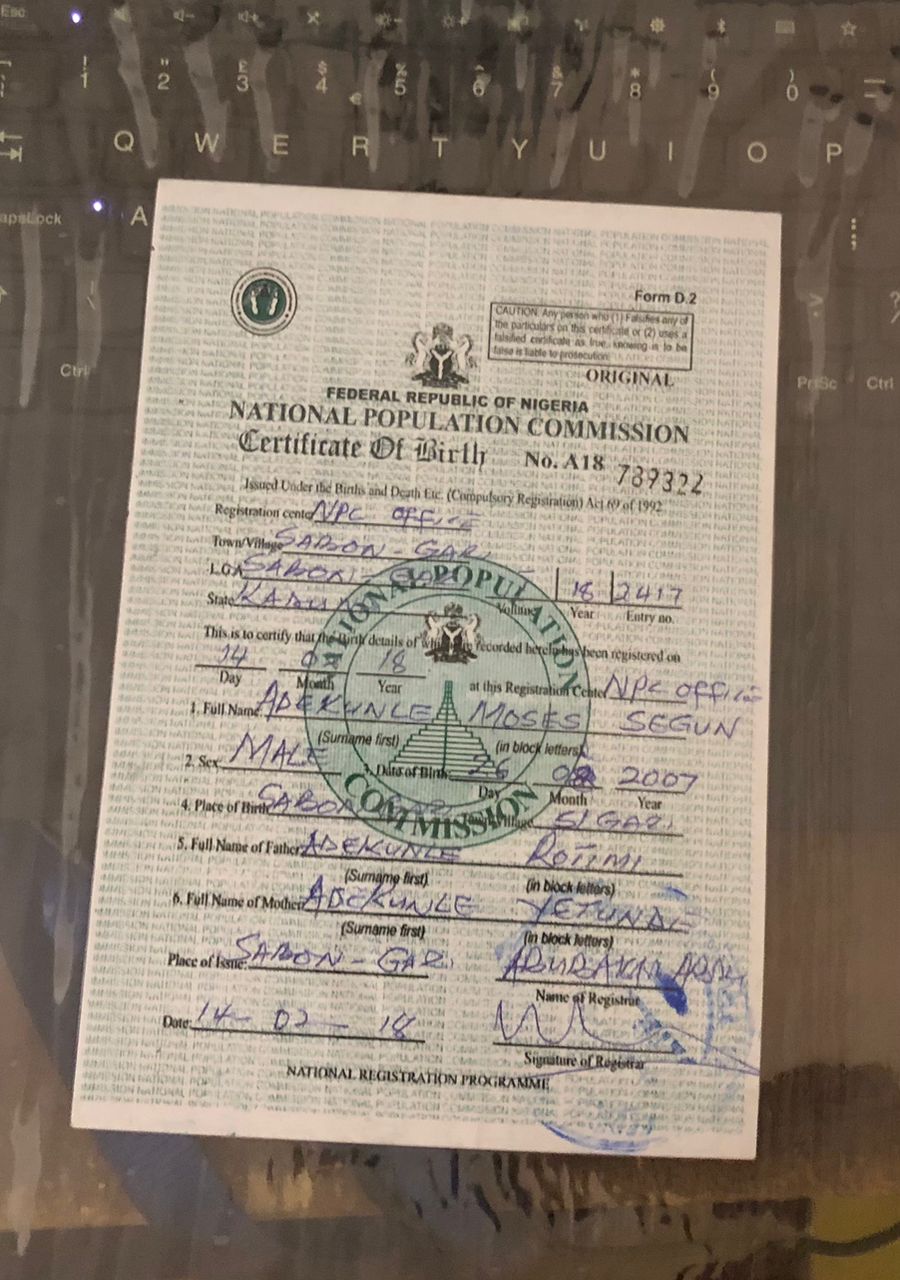 Esc
! " £ $ € % ^ & * ( ) =
1 2 3 4 5 6 7 8 9 0
Q W E R T Y U I O P
CapsLock A
Ctrl PrtSc Ctrl
Form D.2
CAUTION: Any person who (1) Falsifies any of
the particulars on this certificate or (2) uses a
falsified certificate as true, knowing is to be
false is liable to prosecution.
ORIGINAL
FEDERAL REPUBLIC OF NIGERIA
NATIONAL POPULATION COMMISSION
Certificate Of Birth No. A18 789322
Issued Under the Births and Death Etc. (Compulsory Registration) Act 69 of 1992
Registration center NPC OFFICE
Town/Village SABON-GARI
L.G.A SABON-GARI 18 2417
State KADUNA Volume Year Entry no.
This is to certify that the Birth details of which is recorded herein has been registered on
14 02 18
Day Month Year at this Registration Center NPC OFFICE
1. Full Name ADEKUNLE MOSES SEGUN
(Surname first) (in block letters)
2. Sex MALE 3. Date of Birth 26 2007
Day Month Year
4. Place of Birth SABON GARI Town/Village S/GARI
5. Full Name of Father ADEKUNLE ROTIMI
(Surname first) (in block letters)
6. Full Name of Mother ADEKUNLE YETUNDE
(Surname first) (in block letters)
Place of Issue: SABON-GARI
Name of Registrar
Date: 14-02-18
Signature of Registrar
NATIONAL REGISTRATION PROGRAMME
NATIONAL POPULATION
COMMISSION